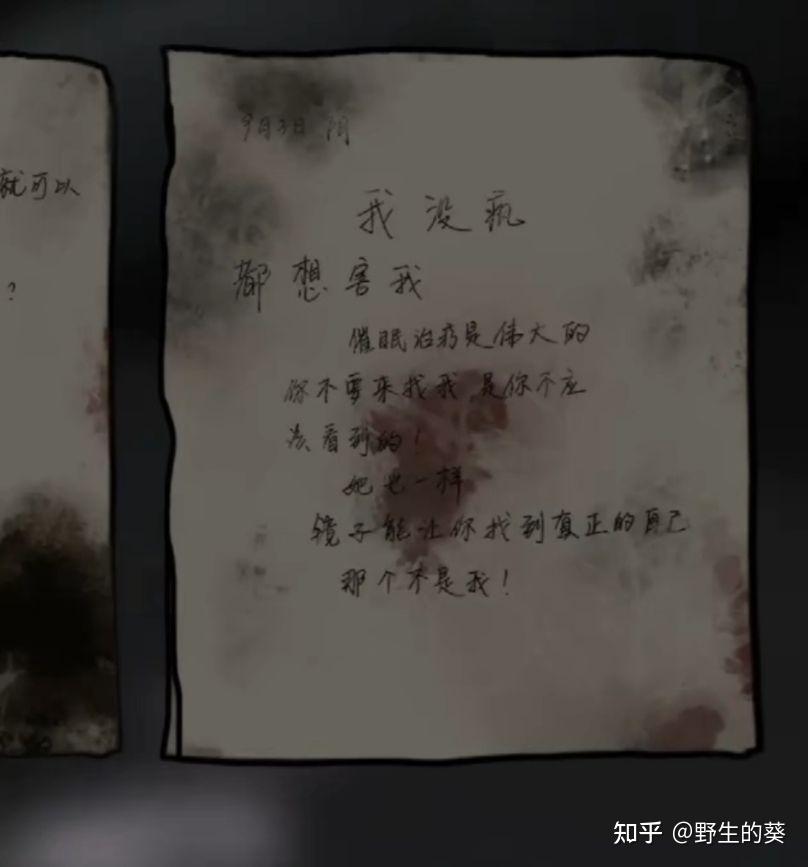 就可以
?
9月3日 阴
我没疯
都想害我
催眠治疗是伟大的
你不要来找我 是你不应
该看到的!
她也一样
镜子能让你找到真正的自己
那个不是我!
知乎 @野生的葵